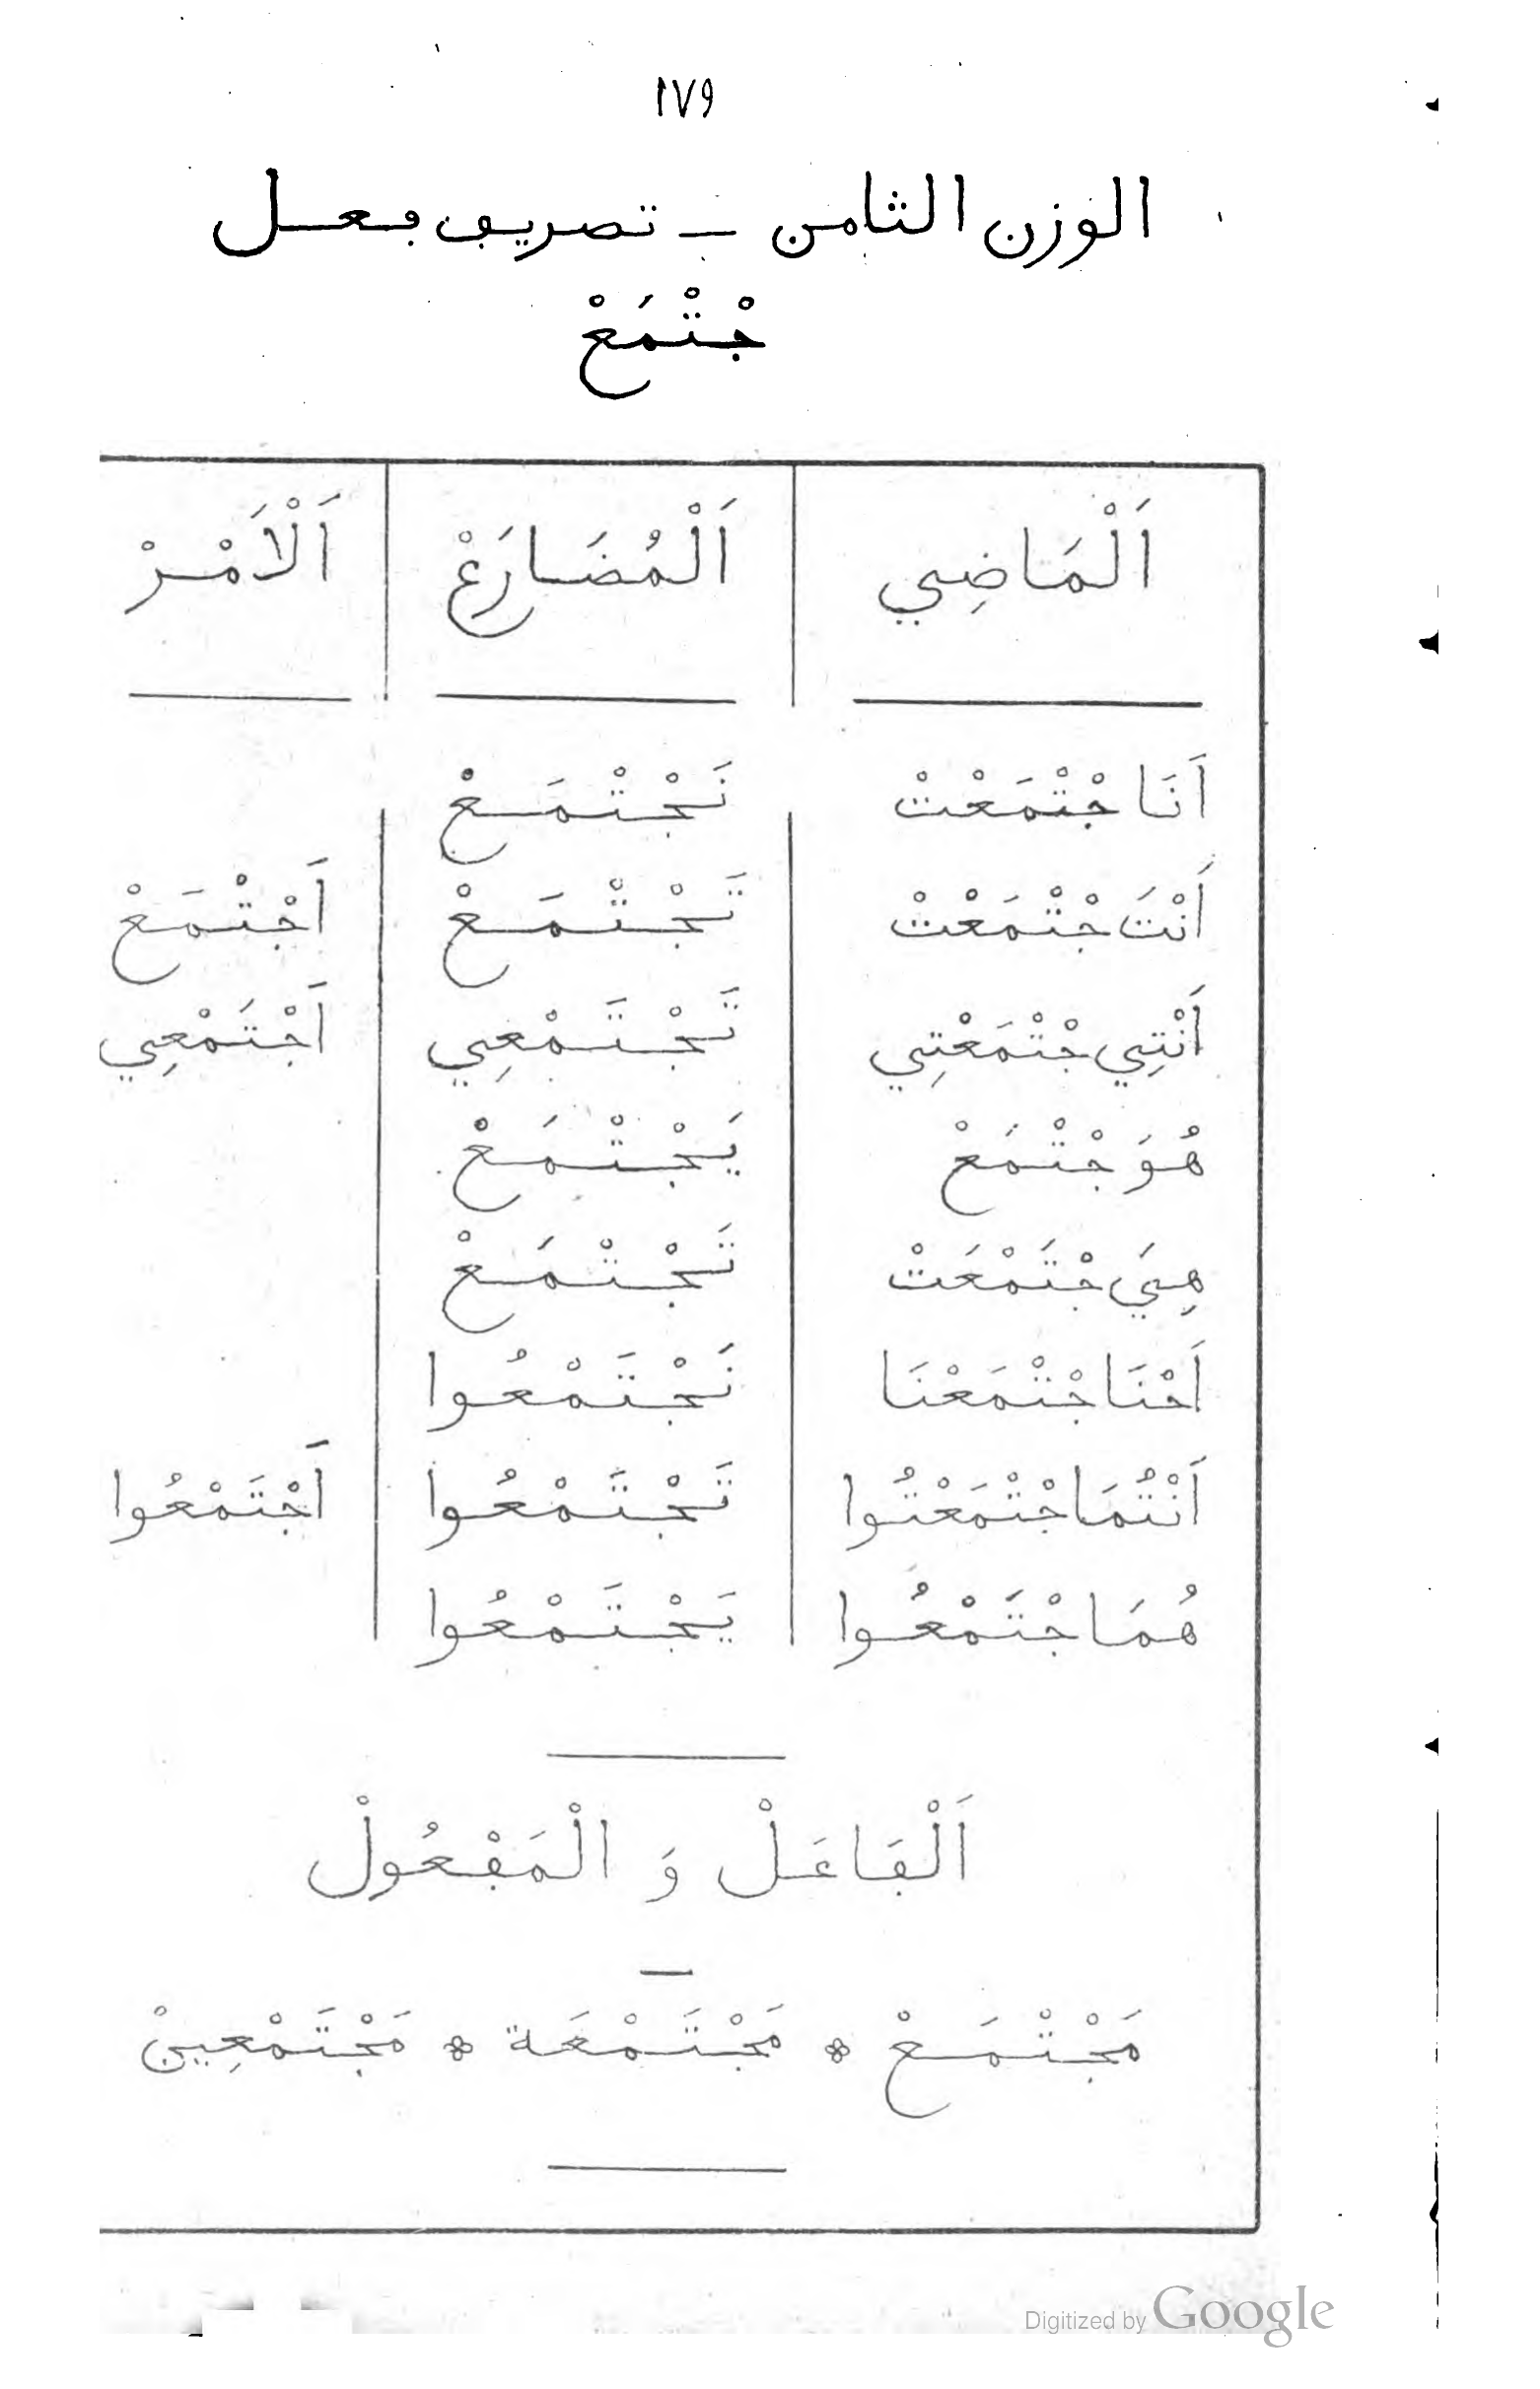 ١٧٩
الوزن الثامن — تصريڢ ڢعل
جْتْمَعْ
اَلْمَاضِي اَلْمُضَارَعْ اَلْاَمْرْ
اَنَا جْتْمَعْتْ نَجْتْمَعْ
اَنْتَ جْتْمَعْتْ تَجْتْمَعْ اَجْتْمَعْ
اَنْتِي جْتْمَعْتِي تَجْتَمْعِي اَجْتَمْعِي
هُوَ جْتْمَعْ يَجْتْمَعْ
هِيَ جْتَمْعَتْ تَجْتْمَعْ
اَحْنَا جْتْمَعْنَا نَجْتَمْعُوا
اَنْتُمَا جْتْمَعْتُوا تَجْتَمْعُوا اَجْتَمْعُوا
هُمَا جْتَمْعُوا يَجْتَمْعُوا
اَلْڢَاعَلْ وَ الْمَڢْعُولْ
مَجْتْمَعْ * مَجْتَمْعَة * مَجْتَمْعِينْ
Digitized by Google